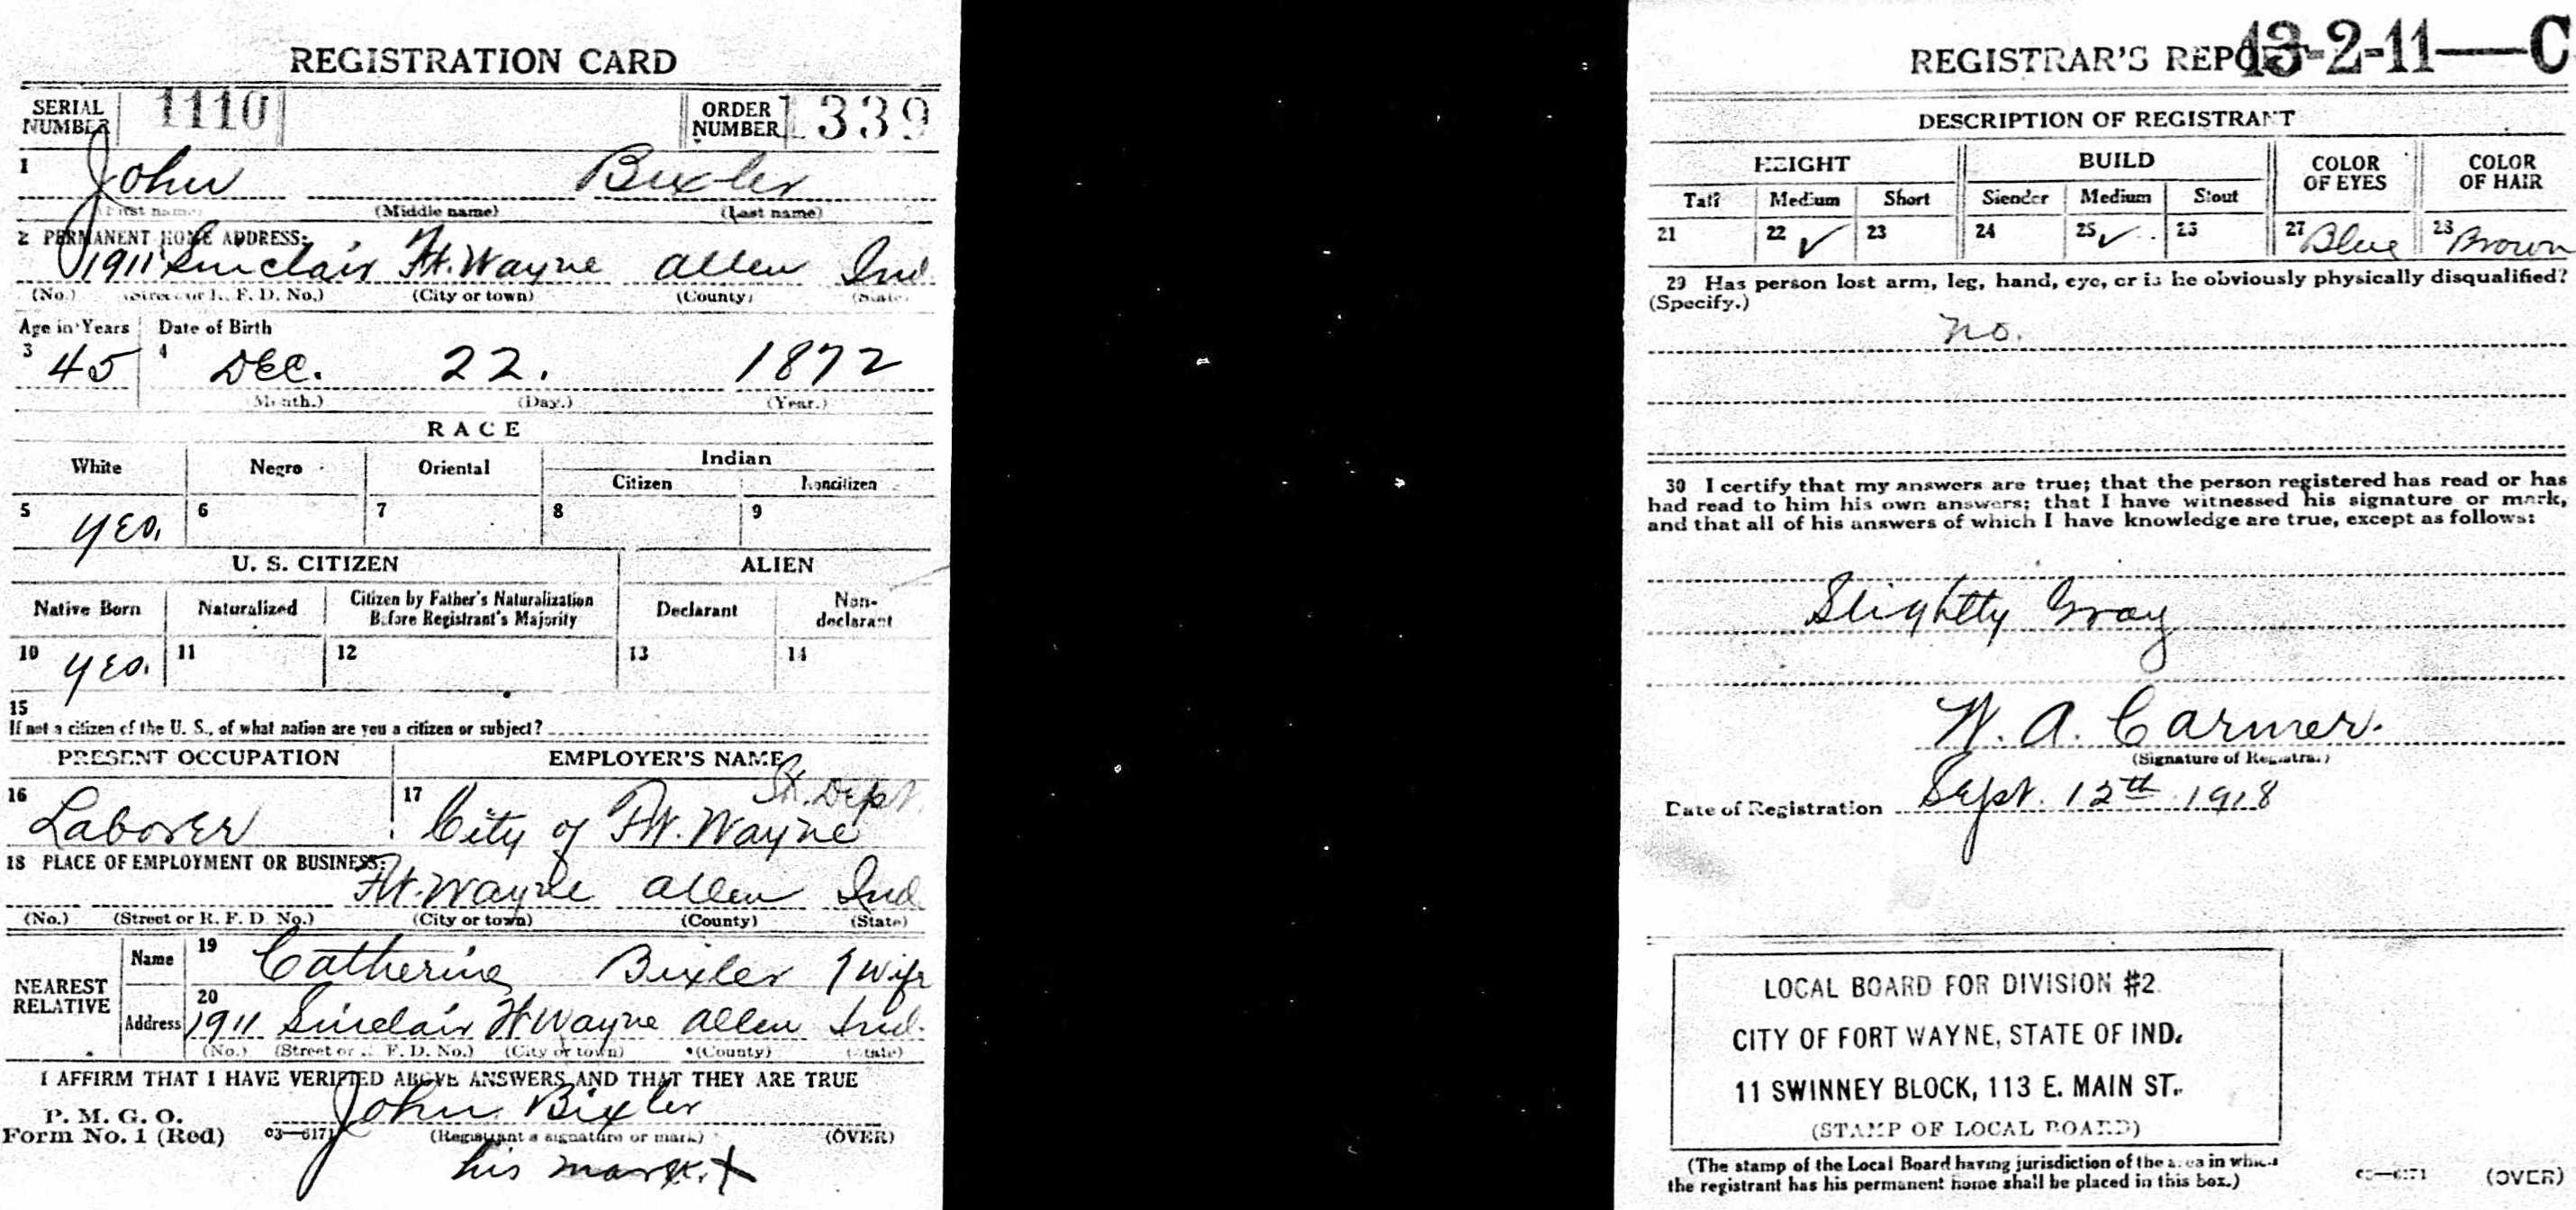 REGISTRATION CARD
SERIAL NUMBER 1110 ORDER NUMBER 1339
1 John Bixler
(First name) (Middle name) (Last name)
2 PERMANENT HOME ADDRESS:
1911 Sinclair Ft. Wayne Allen Ind
(No.) (Street or R. F. D. No.) (City or town) (County) (State)
Age in Years Date of Birth
3 45 4 Dec. 22. 1872
(Month.) (Day.) (Year.)
RACE
White Negro Oriental Indian
Citizen Noncitizen
5 yes. 6 7 8 9
U. S. CITIZEN ALIEN
Native Born Naturalized Citizen by Father's Naturalization Before Registrant's Majority Declarant Non-declarant
10 yes. 11 12 13 14
15
If not a citizen of the U. S., of what nation are you a citizen or subject?
PRESENT OCCUPATION EMPLOYER'S NAME
St. Dept.
16 Laborer 17 City of Ft. Wayne
18 PLACE OF EMPLOYMENT OR BUSINESS:
Ft. Wayne Allen Ind
(No.) (Street or R. F. D. No.) (City or town) (County) (State)
NEAREST RELATIVE
Name 19 Catherine Bixler Wife
20
Address 1911 Sinclair Ft Wayne Allen Ind.
(No.) (Street or R. F. D. No.) (City or town) (County) (State)
I AFFIRM THAT I HAVE VERIFIED ABOVE ANSWERS AND THAT THEY ARE TRUE
P. M. G. O.
Form No. 1 (Red) 03—6171 John Bixler
(Registrant's signature or mark) (OVER)
his mark. X
REGISTRAR'S REPORT 13-2-11—C
DESCRIPTION OF REGISTRANT
HEIGHT BUILD COLOR OF EYES COLOR OF HAIR
Tall Medium Short Slender Medium Stout
21 22 ✓ 23 24 25 ✓ 26 27 Blue 28 Brown
29 Has person lost arm, leg, hand, eye, or is he obviously physically disqualified?
(Specify.)
no.
30 I certify that my answers are true; that the person registered has read or has
had read to him his own answers; that I have witnessed his signature or mark,
and that all of his answers of which I have knowledge are true, except as follows:
Slightly Gray
W. A. Carmer.
(Signature of Registrar)
Date of Registration Sept. 12th 1918
LOCAL BOARD FOR DIVISION #2.
CITY OF FORT WAYNE, STATE OF IND.
11 SWINNEY BLOCK, 113 E. MAIN ST.
(STAMP OF LOCAL BOARD)
(The stamp of the Local Board having jurisdiction of the area in which
the registrant has his permanent home shall be placed in this box.)
03—6171 (OVER)